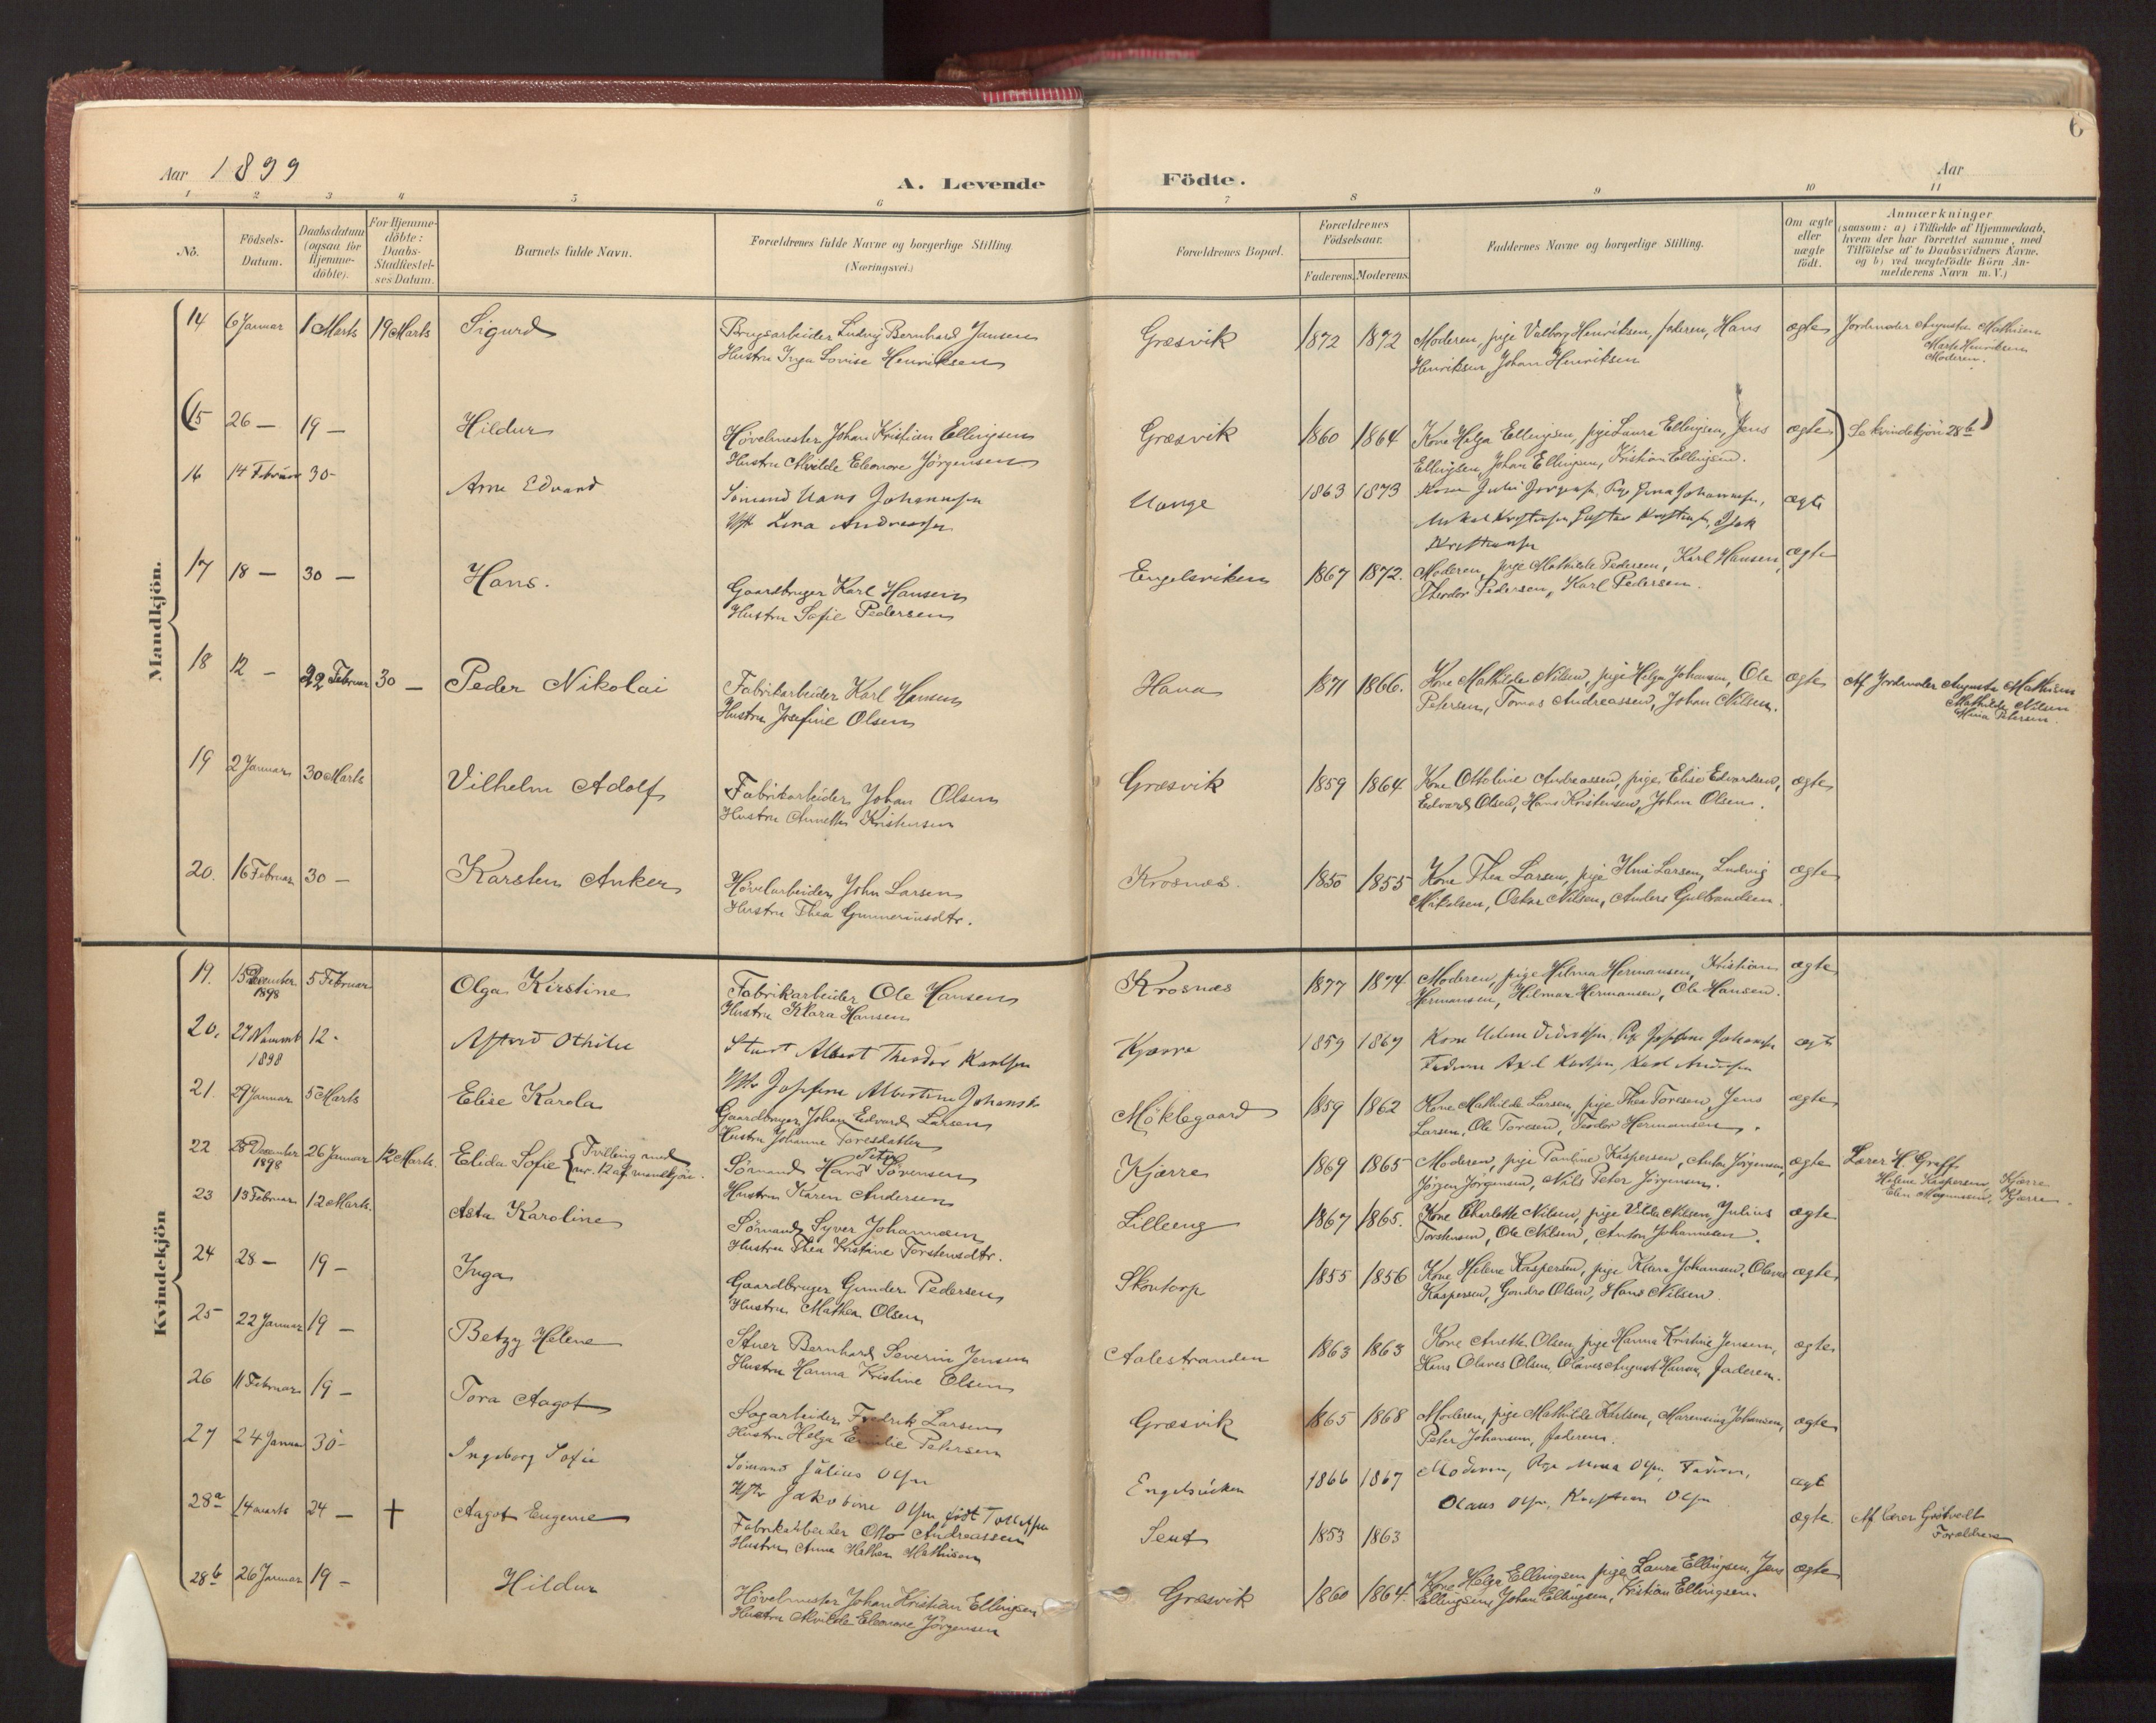 6
Aar 1899
A. Levende Födte.
Aar
1 2 3 4 5 6 7 8 9 10 11
No.
Födsels-Datum.
Daabsdatum (ogsaa for Hjemme-döbte).
For Hjemme-döbte: Daabs-Stadfæstel-ses Datum.
Barnets fulde Navn.
Forældrenes fulde Navne og borgerlige Stilling (Næringsvei.)
Forældrenes Bopæl.
Forældrenes Födselsaar.
Faderens. Moderens.
Faddernes Navne og borgerlige Stilling.
Om ægte eller uægte födt.
Anmærkninger
(saasom: a) i Tilfælde af Hjemmedaab,
hvem der har forrettet samme, med
Tilföielse af to Daabsvidners Navne.
og b) ved uægtefödte Börn An-
melderens Navn m. V.)
Mandkjön.
14 6 Januar 1 Marts 19 Marts Sigurd
Brugsarbeider Ludvig Bernhard Jansen
Hustru Inga Lovise Henriksen
Græsvik 1872 1872
Moderen, pige Valborg Henriksen, faderen, Hans
Henriksen, Johan Henriksen
ægte
Jordmoder Augusta Mathisen
Marte Henriksen
Moderen.
(15 26 — 19 — Hildur
Høvelmester Johan Kristian Ellingsen
Hustru Alvilde Eleonore Jörgensen
Græsvik 1860 1864
Kone Helga Ellingsen, pige Laura Ellingsen, Jens
Ellingsen, Johan Ellingsen, Kristian Ellingsen.
ægte) Se kvindekjön 28b)
16 14 Februar 30- Arne Edvard
Sömand Hans Johannesen
Hst Lina Andreassen
Uange 1863 1873
Kone Julie Jörgensen, Pige Lina Johannesen,
Kristiansen, Gustav Kristiansen, Isak
Kristiansen
ægte
17 18 — 30 — Hans.
Gaardbruger Karl Hansen
Hustru Sofie Pedersen
Engelsviken 1867 1872.
Moderen, pige Mathilde Pedersen, Karl Hansen,
Theodor Pedersen, Karl Pedersen.
ægte
18 12 — 22 Februar 30 — Peder Nikolai
Fabrikarbeider Karl Hansen
Hustru Josefine Olsen
Hana 1871 1866.
Kone Mathilde Nilsen, pige Helga Johansen, Ole
Petersen, Tomas Andreassen, Johan Nilsen.
ægte
Af Jordmoder Augusta Mathisen
Mathilde Nilsen
Mina Petersen.
19 2 Januar 30 Marts Vilhelm Adolf
Fabrikarbeider Johan Olsen
Hustru Annette Kristensen
Græsvik 1859 1864
Kone Ottoline Andreassen, pige Elise Edvardsen,
Edvard Olsen, Hans Kristensen, Johan Olsen.
ægte
20. 16 Februar 30 — Karsten Anker
Høvelarbeider John Larsen
Hustru Thea Gunneriusdtr.
Krosnæs. 1850 1855
Kone Thea Larsen, pige Larsen, Ludvig
Mikalsen, Oskar Nilsen, Anders Gulbrandsen.
ægte
Kvindekjön
19. 15 December 1898 5 Februar Olga Kirstine
Fabrikarbeider Ole Hansen
Hustru Klara Hansen
Krosnæs 1877 1874
Moderen, pige Hilma Hermansen, Kristian
Hermansen, Hilmar Hermansen, Ole Hansen.
ægte
20. 27 Novemb 1898 12 - Astrid Othilie
Stuert Albert Theodor Karlsen
Hst Josefine Albertine Johansd.
Kjærre 1859 1867
Kone Didriksen, Pige Josefine Johansen
Faderen Axel Karlsen, Karl
ægte
21. 29 Januar 5 Marts Elise Karola
Gaardbruger Johan Edvard Larsen
Hustru Johanne Toresdatter
Möklegaard 1859 1862
Kone Mathilde Larsen, pige Thea Toresen, Jens
Larsen, Ole Toresen, Teodor Hermansen.
ægte
22 28 December 1898 26 Januar 12 Marts. Elida Sofie {Tvilling med nr. 12 af mandkjön.
Sömand Hans Peter Sörensen
Hustru Karen Andersen
Kjærre 1869 1865
Moderen, pige Pauline Kaspersen, Anton Jörgensen,
Jörgen Jörgensen, Nils Peter Jörgensen.
ægte
Lærer H. Graff.
Helene Kaspersen, Kjærre
Elin Magnussen, Kjærre.
23 13 Februar 12 Marts. Asta Karoline
Sömand Syver Johannesen
Hustru Thea Kristine Torstensdtr.
Lilleeng 1867 1865.
Kone Charlotte Nilsen, pige Valda Nilsen, Julius
Torstensen, Ole Nilsen, Anton Johannesen.
ægte
24 28 — 19 — Inga
Gaardbruger Gunder Pedersen
Hustru Mathea Olsen
Skontorp 1855 1856
Kone Helene Kaspersen, pige Klara Johansen, Olava
Kaspersen, Gondro Olsen, Hans Nilsen.
ægte
25 22 Januar 19 — Betzy Helene
Stuer Bernhard Severin Jensen
Hustru Hanna Kristine Olsen
Aalestranden 1863 1863
Kone Anette Olsen, pige Hanna Kristine Jensen,
Hans Olaves Olsen, Olaves August Hansen, faderen.
ægte
26 11 Februar 19 — Tora Aagot
Sagarbeider Fredrik Larsen
Hustru Helga Emilie Petersen
Græsvik 1865 1868
Moderen, pige Mathilde Karlsen, Marensius Johansen,
Peter Johansen, faderen.
ægte
27 24 Januar 30- Ingeborg Sofie
Sömand Julius Olsen
Hstr Jakobine Olsen, födt Tollefsen
Engelsviken 1866 1867
Moderen, Pige Olsen, Faderen,
Olaus Olsen, Kristian Olsen
ægte
28a 14 Marts 24 — † Aagot Eugenie
Fabrikarbeider Otto Andreassen
Hustru Anna Mathea Mathisen
Seut 1853 1863
ægte.
Af lærer Grötvedt
Forældrene
28b 26 Januar 19 — Hildur
Hövelmester Johan Kristian Ellingsen
Hustru Alvilde Eleonore Jörgensen
Græsvik 1860 1864.
Kone Helga Ellingsen, pige Laura Ellingsen, Jens
Ellingsen, Johan Ellingsen, Kristian Ellingsen.
ægte